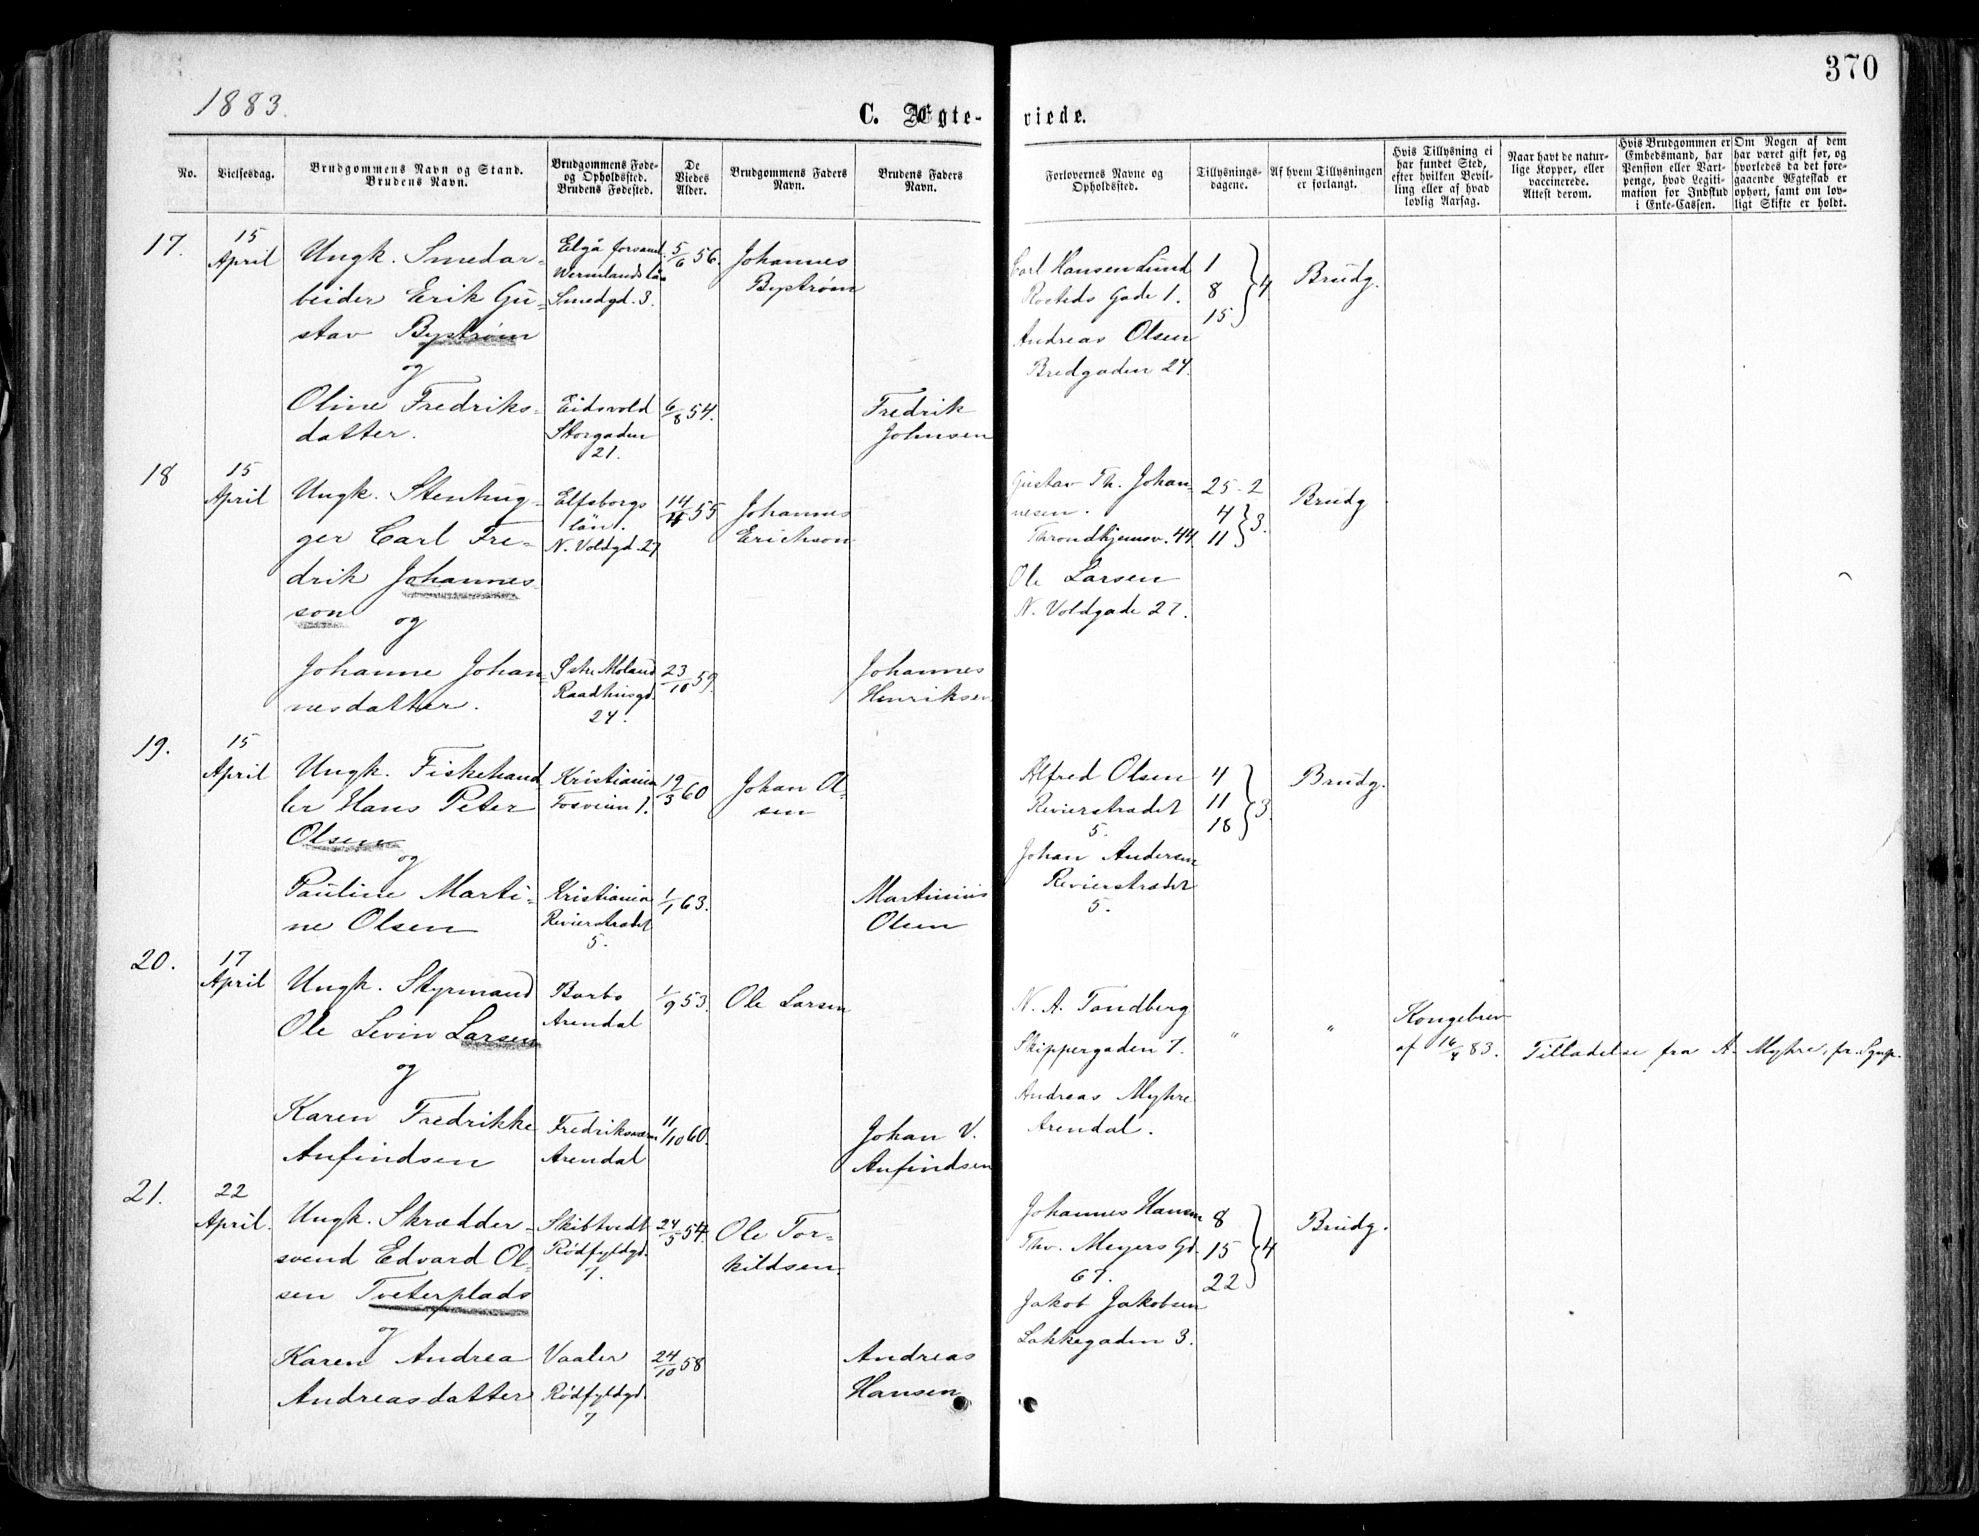 370
1883.
C. Ægte-
viede.
No.
Vielsesdag.
Brudgommens Navn og Stand.
Brudens Navn.
Brudgommens Føde-
og Opholdssted.
Brudens Fødested.
De
Viedes
Alder.
Brudgommens Faders
Navn.
Brudens Faders
Navn.
Forlovernes Navne og
Opholdssted.
Tillysnings-
dagene.
Af hvem Tillysningen
er forlangt.
Hvis Tillysning ei
har fundet Sted,
efter hvilken Bevil-
ling eller af hvad
lovlig Aarsag.
Naar havt de natur-
lige Kopper, eller
vaccinerede.
Attest derom.
Hvis Brudgommen er
Embedsmand, har
Pension eller Vart-
penge, hvad Legiti-
mation for Indskud
i Enke-Cassen.
Om Nogen af dem
har været gift før, og
hvorledes da det fore-
gaaende Ægteskab er
ophørt, samt om lov-
ligt Skifte er holdt.
17.
15
April
Ungk. Smedar-
beider Erik Gu-
stav Bystrøm
og
Oline Fredriks-
datter.
Elgå
Wermlands län
Smedgd. 3.
Eidsvold
Storgaden
21.
5/6 56.
6/8 54.
Johannes
Bystrøm
Fredrik
Johnsen
Carl Hansen Lund
Rosteds Gade 1.
Andreas Olsen
Bredgaden 24.
1
8
15
} 4
Brudg.
18
15
April
Ungk. Stenhug-
ger Carl Fre-
drik Johannes-
son
og
Johanne Johan-
nesdatter.
Elfsborgs
län.
N. Voldgd. 27
Østre Moland
Raadhusgd.
24.
14/4 55
23/10 59.
Johannes
Erickson
Johannes
Henriksen
Gustav Th. Johan-
nesen.
Throndhjemsv. 44.
Ole Larsen
N. Voldgade 27.
25-2
4
11
} 3.
Brudg.
19.
15
April
Ungk. Fiskehand
ler Hans Peter
Olsen
og
Pauline Marti-
ne Olsen
Kristiania
Fosveien 1.
Kristiania
Revierstrædet
5.
19/3 60
1/1 63.
Johan Ol-
sen
Martinius
Olsen
Alfred Olsen
Revierstrædet
5.
Johan Andersen
Revierstrædet
5.
4
11
18
} 3.
Brudg.
20.
17
April
Ungk. Styrmand
Ole Levin Larsen
og
Karen Fredrikke
Anfindsen
Barbo
Arendal
Fredriksværn
Arendal
1/9 53.
11/10 60.
Ole Larsen
Johan V.
Anfindsen
N. A. Tandberg
Skippergaden 7.
Andreas Myhre
Arendal.
"
"
Kongebrev
af 16/4 83.
Tilladelse fra A. Myhre, fr. Sgnp.
21.
22
April.
Ungk. Skrædder-
svend Edvard Ol-
sen Tveterplads
og
Karen Andrea
Andreasdatter
Skibtvedt
Rødfyldgd.
7.
Vaaler
Rødfyldgd.
7
24/5 54.
24/10 58
Ole Tor-
kildsen.
Andreas
Hansen
Johannes Hansen
Thv. Meyers Gd.
67.
Jakob Jakobsen
Lakkegaden 3.
8
15
22
} 4
Brudg.